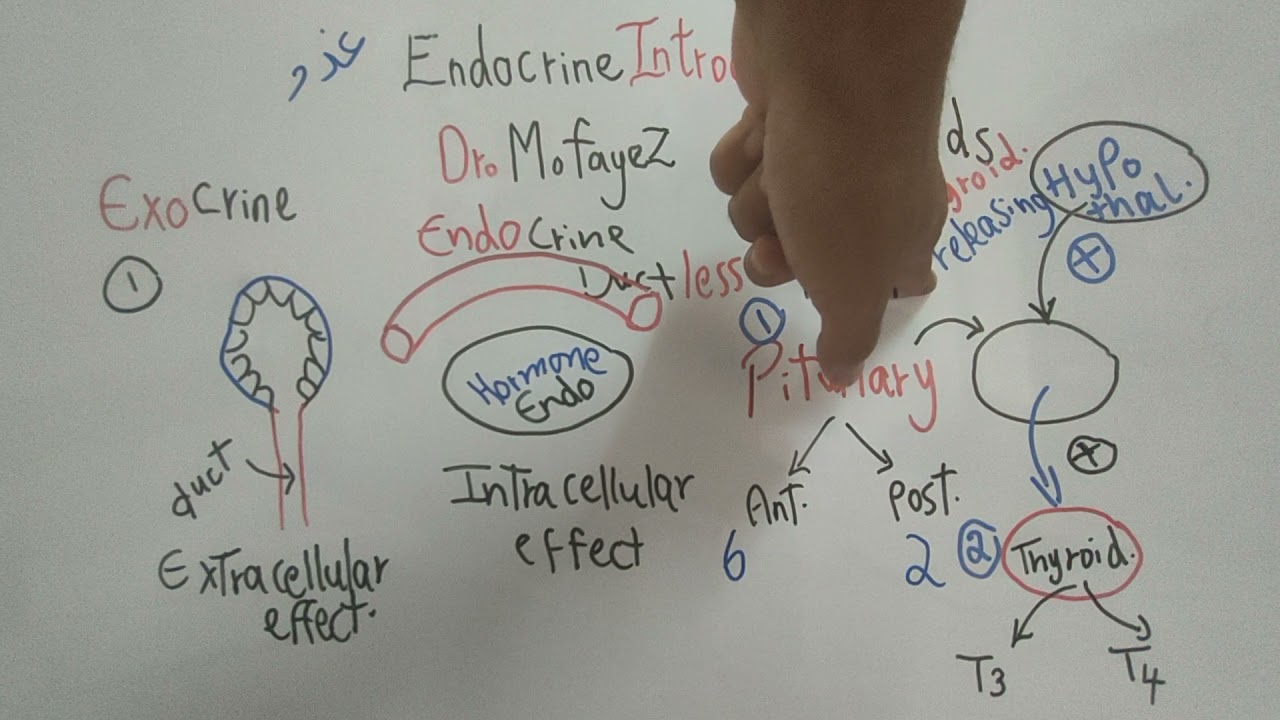 غدد
Endocrine Intro
Dr. Mofayez
ds
Exocrine
Endocrine
Ductless
roid.
releasing
Hypo
thal.
+
1
Hormone
Endo
1
Pituitary
+
duct
Extracellular
effect.
Intracellular
effect
Ant.
6
Post.
2
2
Thyroid.
T3
T4